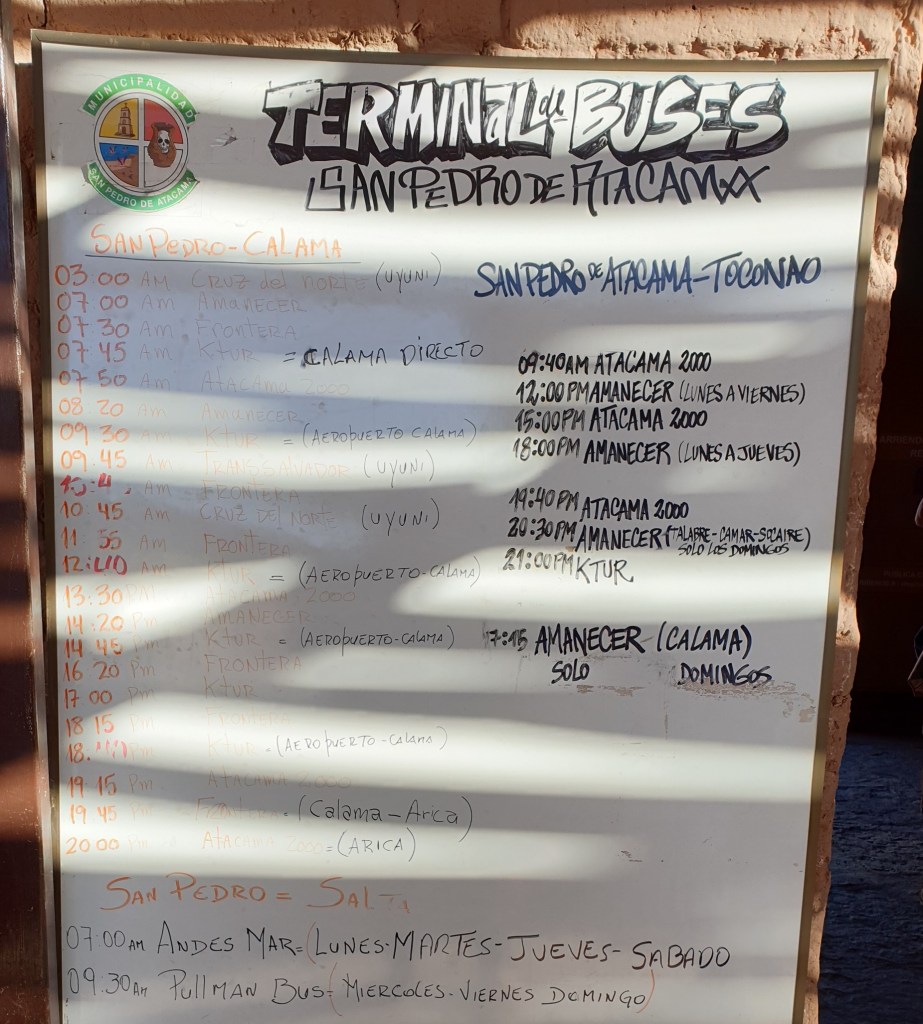 MUNICIPALIDAD
SAN PEDRO DE ATACAMA
TERMINAL de BUSES
SAN PEDRO DE ATACAMA
SAN PEDRO-CALAMA
03:00 AM CRUZ del NORTE (UYUNI)
07 00 Am AMANECER
07 30 Am FRONTERA
07 45 Am KTUR = CALAMA DIRECTO
07 50 Am ATACAMA 2000
08 20 Am AMANECER
09 30 Am KTUR = (AEROPUERTO CALAMA)
09.45 Am TRANSSALVADOR (UYUNI)
Am FRONTERA
10 45 Am CRUZ DEL NORTE (UYUNI)
11 55 Am FRONTERA
Am KTUR = (AEROPUERTO-CALAMA)
13:30 ATACAMA 2000
14:20 Pm AMANECER
14 45 Pm KTUR = (AEROPUERTO-CALAMA)
16 20 Pm FRONTERA
17 00 Pm KTUR
18 15 Pm FRONTERA
Pm KTUR = (AEROPUERTO-CALAMA)
19 15 Pm ATACAMA 2000
19 45 Pm FRONTERA = (Calama-Arica)
20 00 Pm ATACAMA 2000 = (ARICA)
SAN PEDRO DE ATACAMA-TOCONAO
09:40AM ATACAMA 2000
12:00PM AMANECER (LUNES A VIERNES)
15:00PM ATACAMA 2000
18:00PM AMANECER (LUNES A JUEVES)
19:40PM ATACAMA 2000
20:30PM AMANECER (TALABRE-CAMAR-SOCAIRE)
SOLO LOS DOMINGOS
21:00PM KTUR
17:15 AMANECER (CALAMA)
SOLO DOMINGOS
SAN PEDRO = SALTA
07:00AM ANDES MAR=(LUNES-MARTES-JUEVES-SABADO
09:30Am PULLMAN BUS-(MIERCOLES-VIERNES DOMINGO)